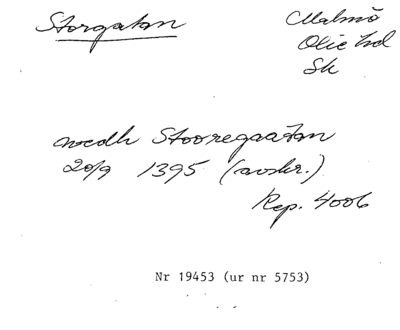 Storgatan
Malmö
Oxie hd
Sk
wedh Stooregaatan
20/9 1395 (avskr.)
Rep. 4006
Nr 19453 (ur nr 5753)